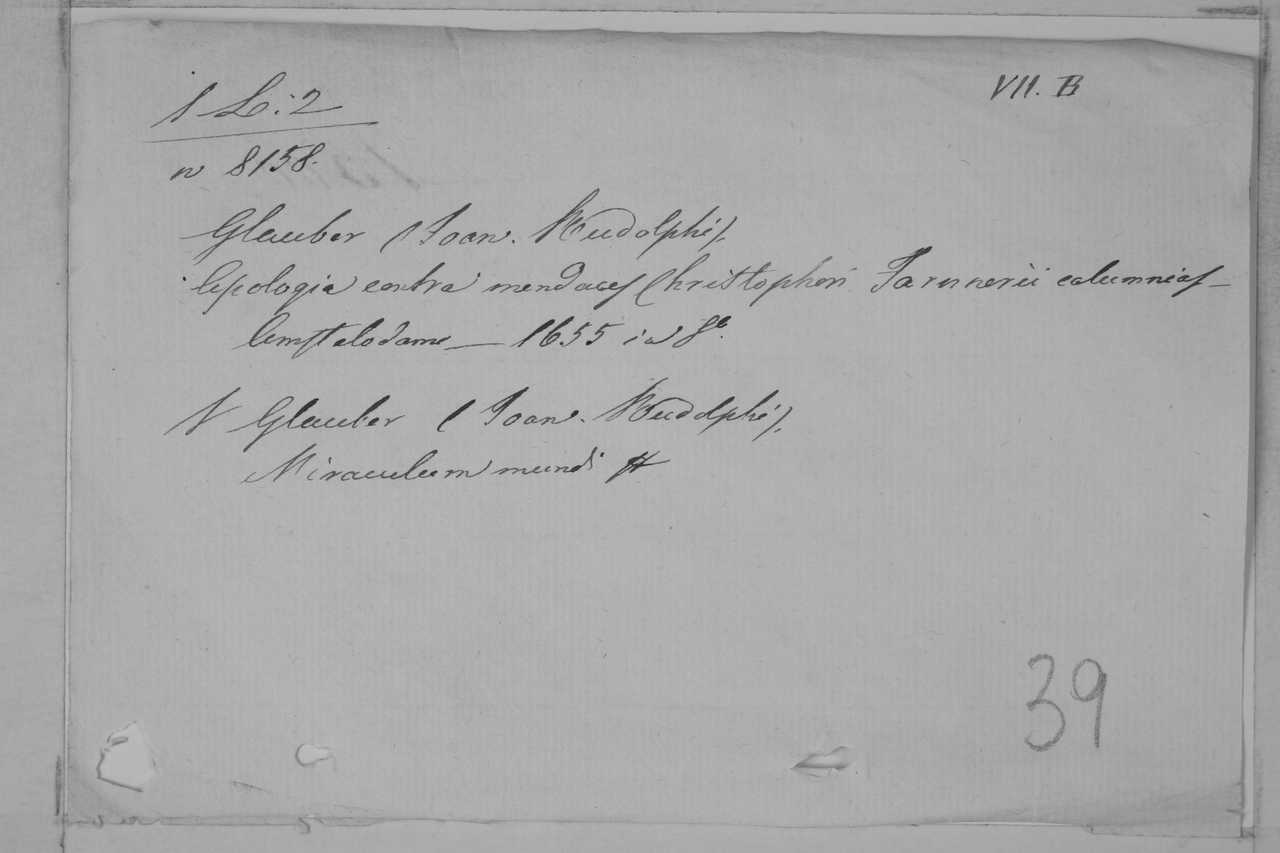 1 L: 2
VII. B
n 8158.
Glauber (Joan. Rudolphi).
Apologia contra mendaces Christophori Farnnerii calumnias —
Amstelodame — 1655 in 8°.
V Glauber (Joan. Rudolphi).
Miraculum mundi
39